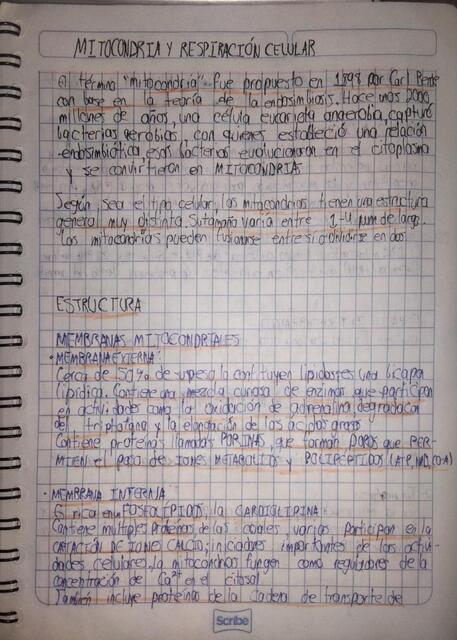 MITOCONDRIA Y RESPIRACIÓN CELULAR
El término "mitocondria" fue propuesto en 1898 por Carl Benda
con base en la teoría de la endosimbiosis. Hace unos 2000
millones de años, una célula eucariota anaerobia, capturó
bacterias aerobias, con quienes estableció una relación
endosimbiótica, esas bacterias evolucionaron en el citoplasma
y se convirtieron en MITOCONDRIAS
Según sea el tipo celular, las mitocondrias tienen una estructura
general muy distinta. Su tamaño varía entre 1-4 µm de largo.
Las mitocondrias pueden fusionarse entre sí o dividirse en dos
ESTRUCTURA
MEMBRANAS MITOCONDRIALES
• MEMBRANA EXTERNA:
Cerca de 50% de su peso la constituyen lípidos, es una bicapa
lipídica. Contiene una mezcla curiosa de enzimas que participan
en actividades como la oxidación de adrenalina, degradación
del triptofano y la elongación de los ácidos grasos
Contiene proteínas llamadas PORINAS, que forman POROS que PER-
MITEN el paso de IONES METABOLITOS y POLIPÉPTIDOS (ATP, NAD, CO-A)
• MEMBRANA INTERNA
Es rica en FOSFOLÍPIDOS, la CARDIOLIPINA
Contiene múltiples proteínas de las cuales varias participan en la
CAPTACIÓN DE IONES CALCIO; iniciadores importantes de las activi-
dades celulares, la mitocondrias fungen como reguladores de la
concentración de Ca²⁺ en el citosol
También incluye proteínas de la cadena de transporte de
Scribe